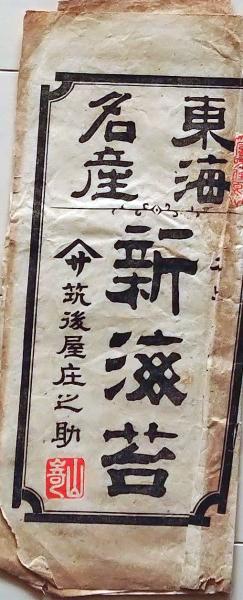 東海
名産
新海苔
サ筑後屋庄之助